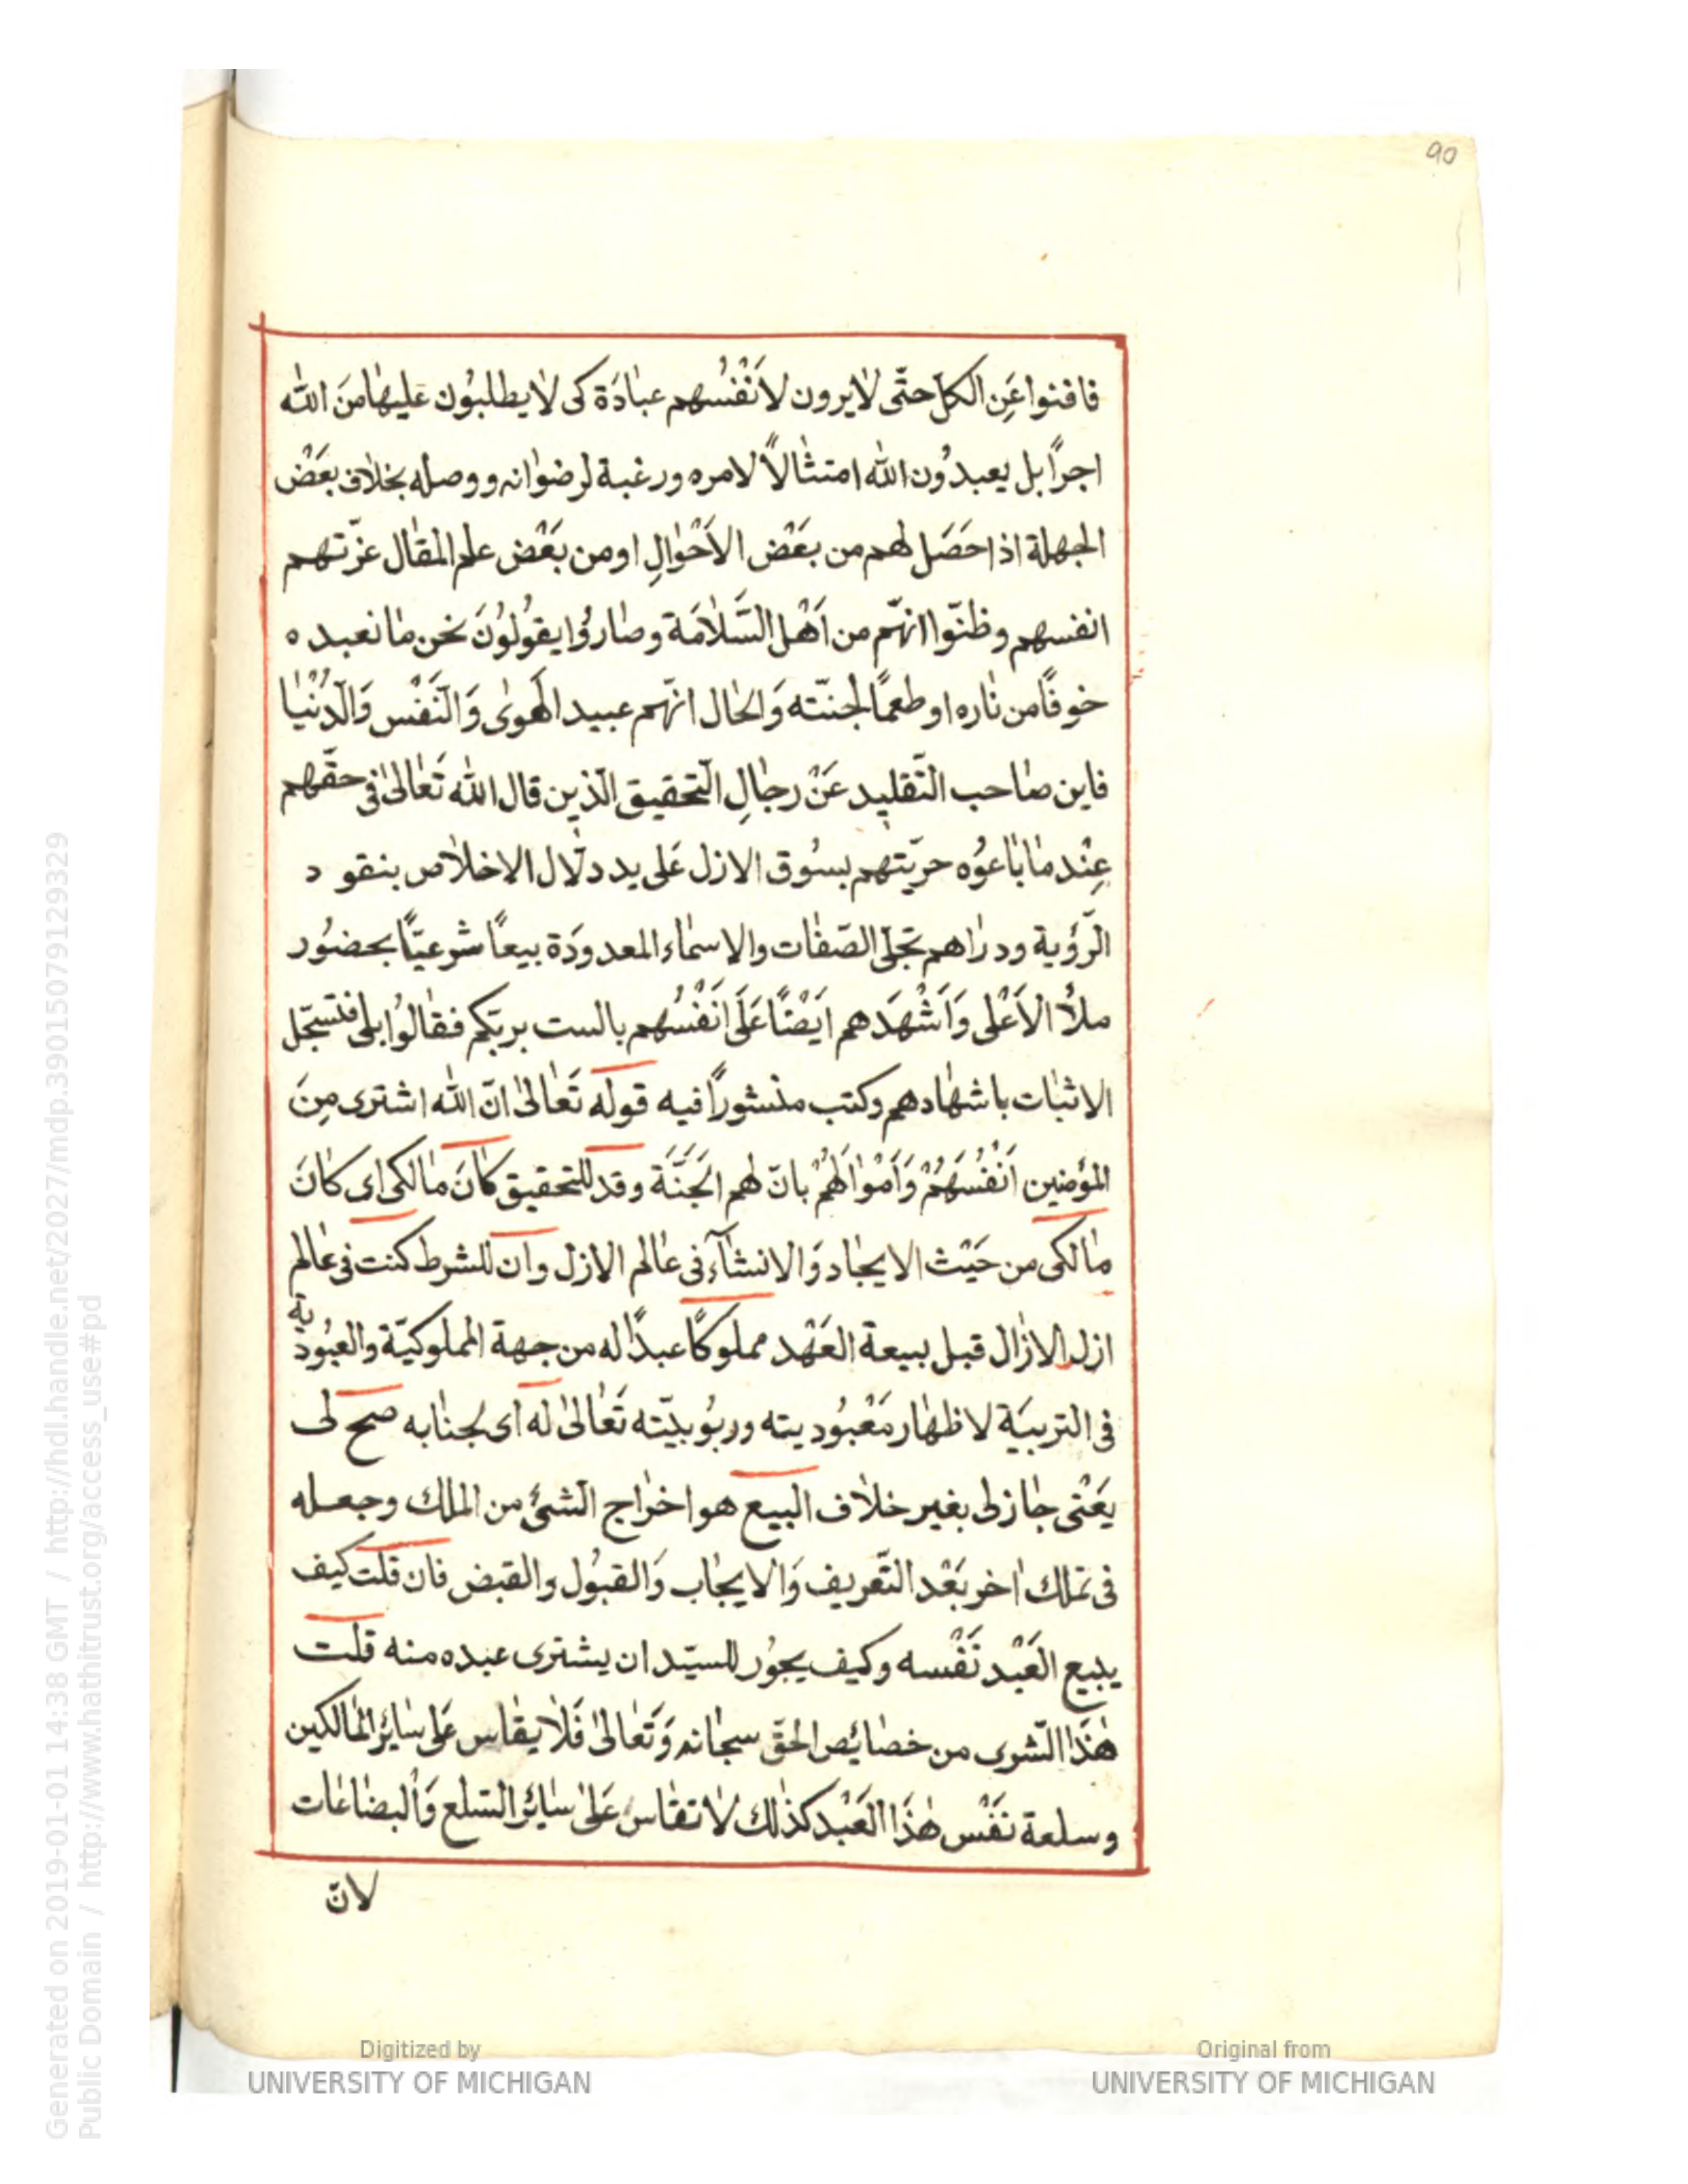 90
فافنوا عَنِ الكلّ حتّى لايرون لاَنْفُسُهم عبادَة كى لا يطلبُون عليها منَ الله
اجرًا بل يعبدُون الله امتثالاً لامره ورغبة لرضوانه ووصله بخلاف بعَضْ
الجهلة اذا حَصَل لهم من بعَضْ الاَحْوالِ او من بَعْض علم المقال عزّتهم
انفسهم وظنّوا انّهم من اَهْل السَّلامَة وصارُوا يقوُلوُنَ نحن ما نعبده
خوفًا من ناره او طعمًا لجنّته وَالحال انّهم عبيد الهوىٰ وَالنَّفْس وَالدُنْيا
فاين صاحب التّقليد عَنْ رجالِ التّحقيق الّذين قال الله تَعالىٰ فى حقّهم
عِنْد ما باعوُه حريّتهم بسوُق الازل عَلى يد دلّال الاخلاص بنقود
الرّؤية ودراهم تجلّى الصّفات والاسماء المعدودَة بيعًا شرعيّاً بحضوُر
ملأ الاَعْلى وَاَشْهَدهم ايَضًا عَلَى انَفْسُهم بالست بربّكم فقالوُا بلى فتسجّل
الاثبات باشهادهم وكتب منشورًا فيه قوله تَعالىٰ انّ الله اشترى مِنَ
المؤمنين اَنْفُسَهُمْ وَاَمْوالَهُمْ بانّ لهم الجَنَّة وقد للتحقيق كانَ مالكى اى كانَ
مالكى من حَيْث الايجاد وَالانشآء فى عالم الازل وان للشرط كنت فى عالم
ازل الازال قبل بيعة العَهْد مملوكًا عبدًا له من جهة المملوكيّة والعبُودية
فى التربيَة لاظهار مَعْبُوديته وربُوبيّته تَعالىٰ له اى لجنابه صحّ لى
يَعْنى جازلى بغير خلاف البيع هو اخراج الشئ من الملك وجعله
فى تملك اخر بَعْد التّعريف وَالايجاب وَالقبُول والقبض فان قلت كيف
يبيع العَبْد نَفْسه وكيف يجوُز للسيّد ان يشترى عبده منه قلت
هٰذَا الشرى من خصائص الحقّ سبحانه وَتَعالىٰ فَلا يقاس عَلى سايرُ المالكين
وسلعة نفَسْ هٰذَا العَبْد كذلك لا تقاس عَلىٰ سايرُ السّلع وَالبضاعات
لانّ
Generated on 2019-01-01 14:38 GMT / http://hdl.handle.net/2027/mdp.39015079129329
Public Domain / http://www.hathitrust.org/access_use#pd
Digitized by
UNIVERSITY OF MICHIGAN
Original from
UNIVERSITY OF MICHIGAN